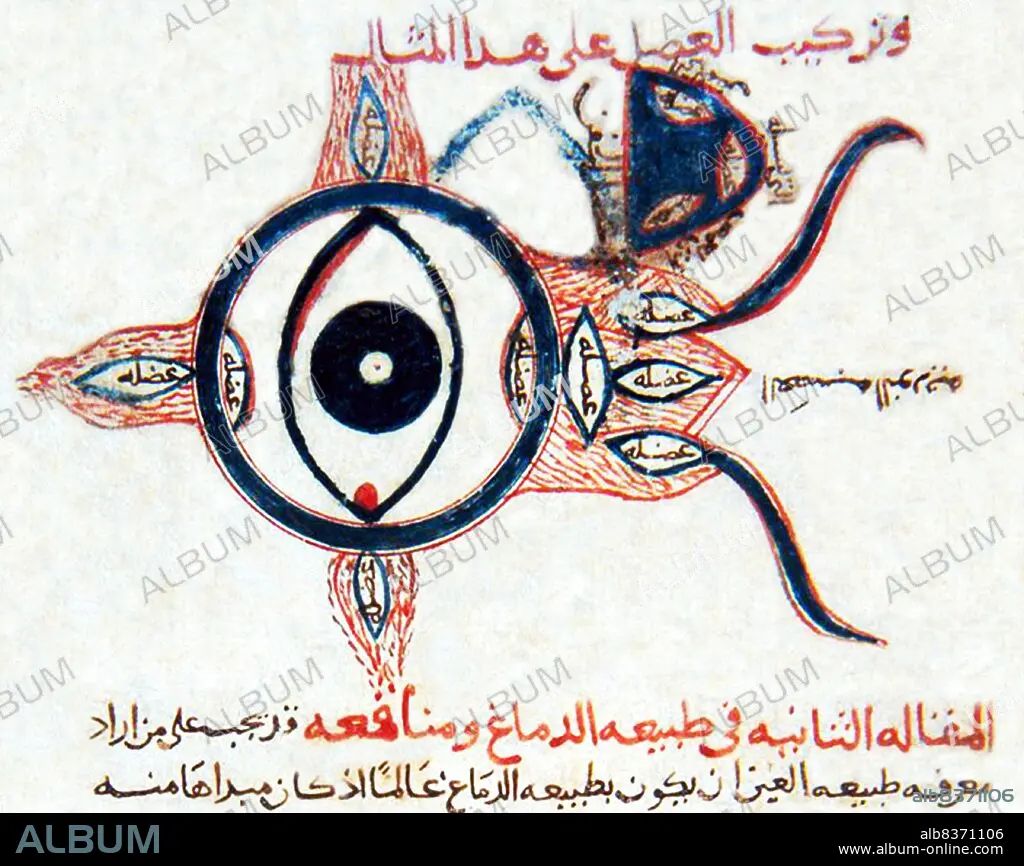 وتركيب العضل على هذا المثال
عضله
عضله
عضله
عضله
عضله
عضله
عضله
عضله
المقاله الثانيه في طبيعه الدماغ ومنافعه قد يجب على من اراد
معرفه طبيعه العين ان يكون بطبيعه الدماغ عالمًا اذ كان مبداها منه
alb8371106
ALBUM
alb8371106
www.album-online.com